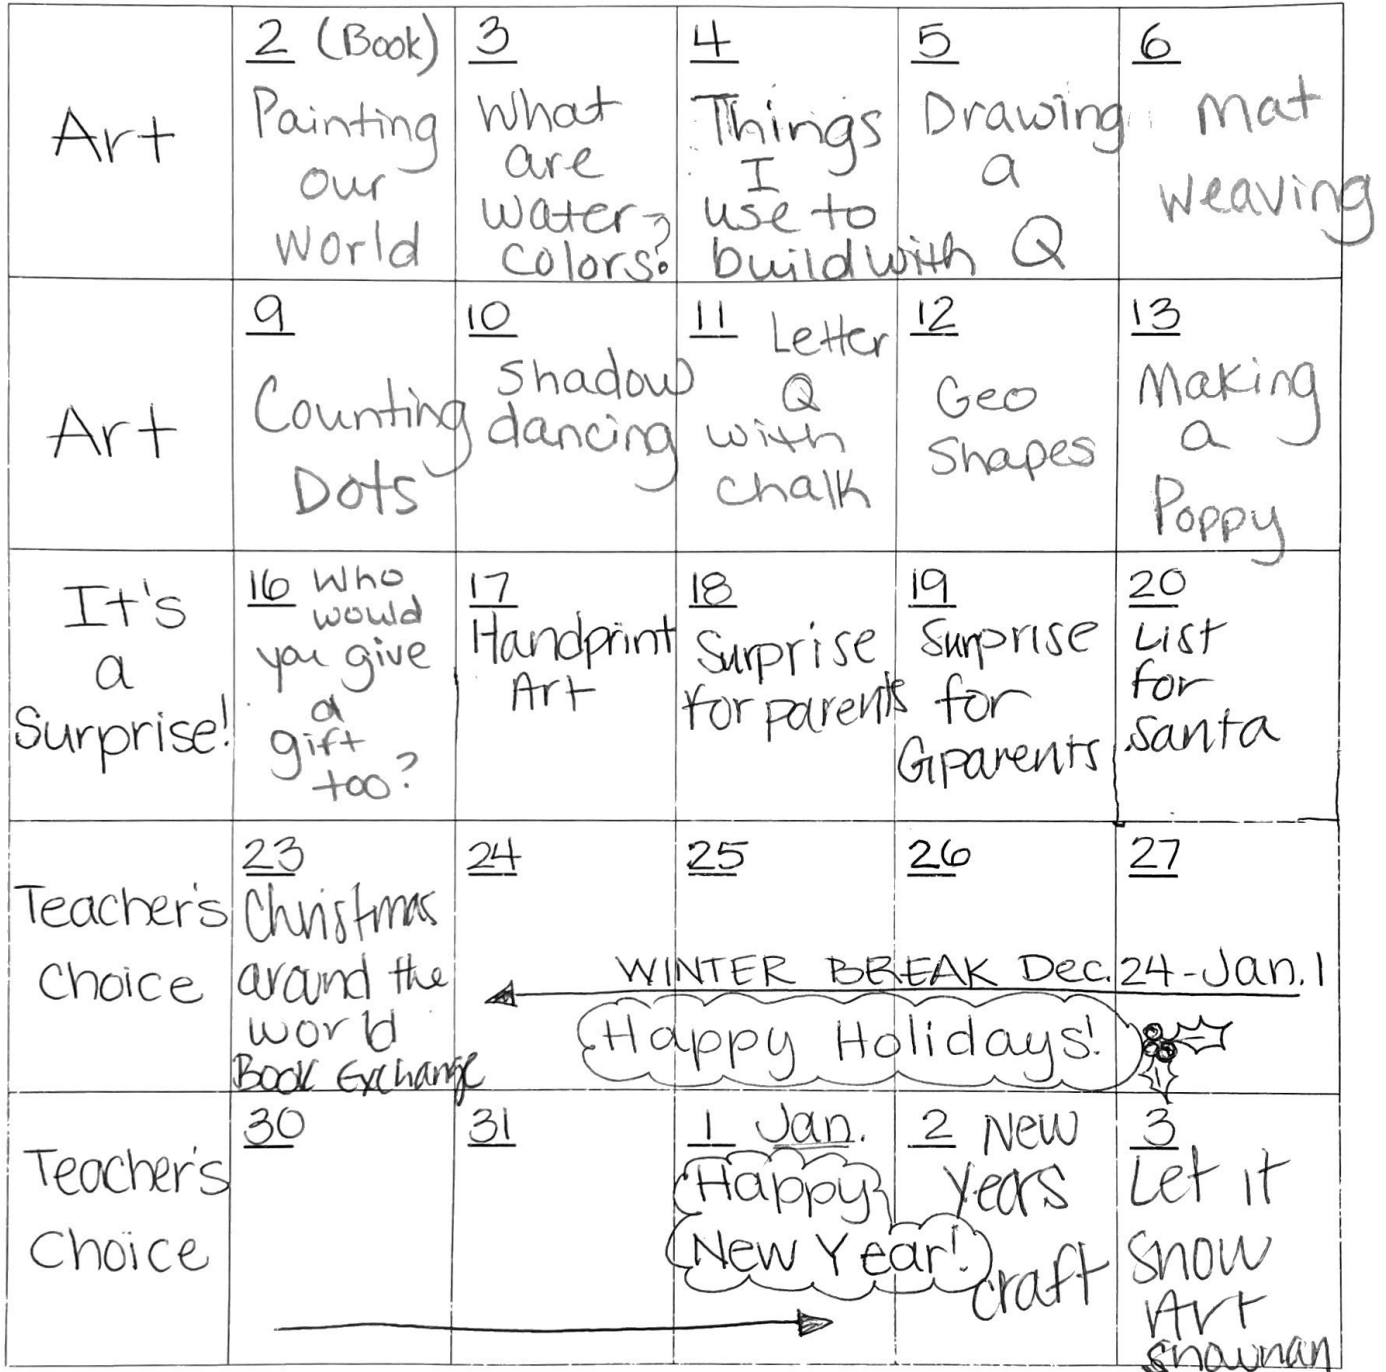 Art
2 (Book)
Painting
our
world
3
What
are
water
colors?
4
Things
I
use to
build with
5
Drawing
a
Q
6
Mat
weaving
Art
9
Counting
Dots
10
Shadow
dancing
11 Letter
Q
with
chalk
12
Geo
Shapes
13
Making
a
Poppy
It's
a
Surprise!
16 Who
would
you give
a
gift
too?
17
Handprint
Art
18
Surprise
for parents
19
Surprise
for
Gparents
20
List
for
Santa
Teacher's
Choice
23
Christmas
around the
world
Book Exchange
24
25
26
27
WINTER BREAK Dec. 24-Jan. 1
Happy Holidays!
Teacher's
Choice
30
31
1 Jan.
Happy
New Year!
2 New
Years
craft
3
Let it
Snow
Art
snowman